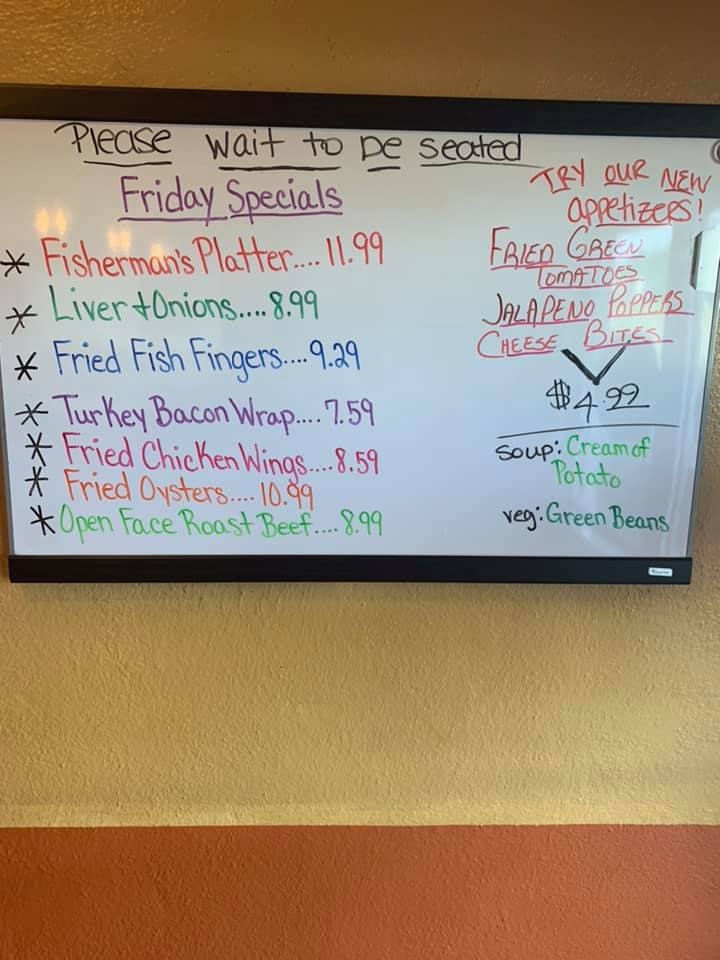 Please wait to be seated
Friday Specials
* Fisherman's Platter.... 11.99
* Liver + Onions.... 8.99
* Fried Fish Fingers.... 9.29
* Turkey Bacon Wrap.... 7.59
* Fried Chicken Wings.... 8.59
* Fried Oysters.... 10.99
* Open Face Roast Beef.... 8.99
TRY OUR NEW
appetizers!
FRIED GREEN
TOMATOES
JALAPENO POPPERS
CHEESE BITES
$4.99
soup: Cream of
Potato
veg: Green Beans